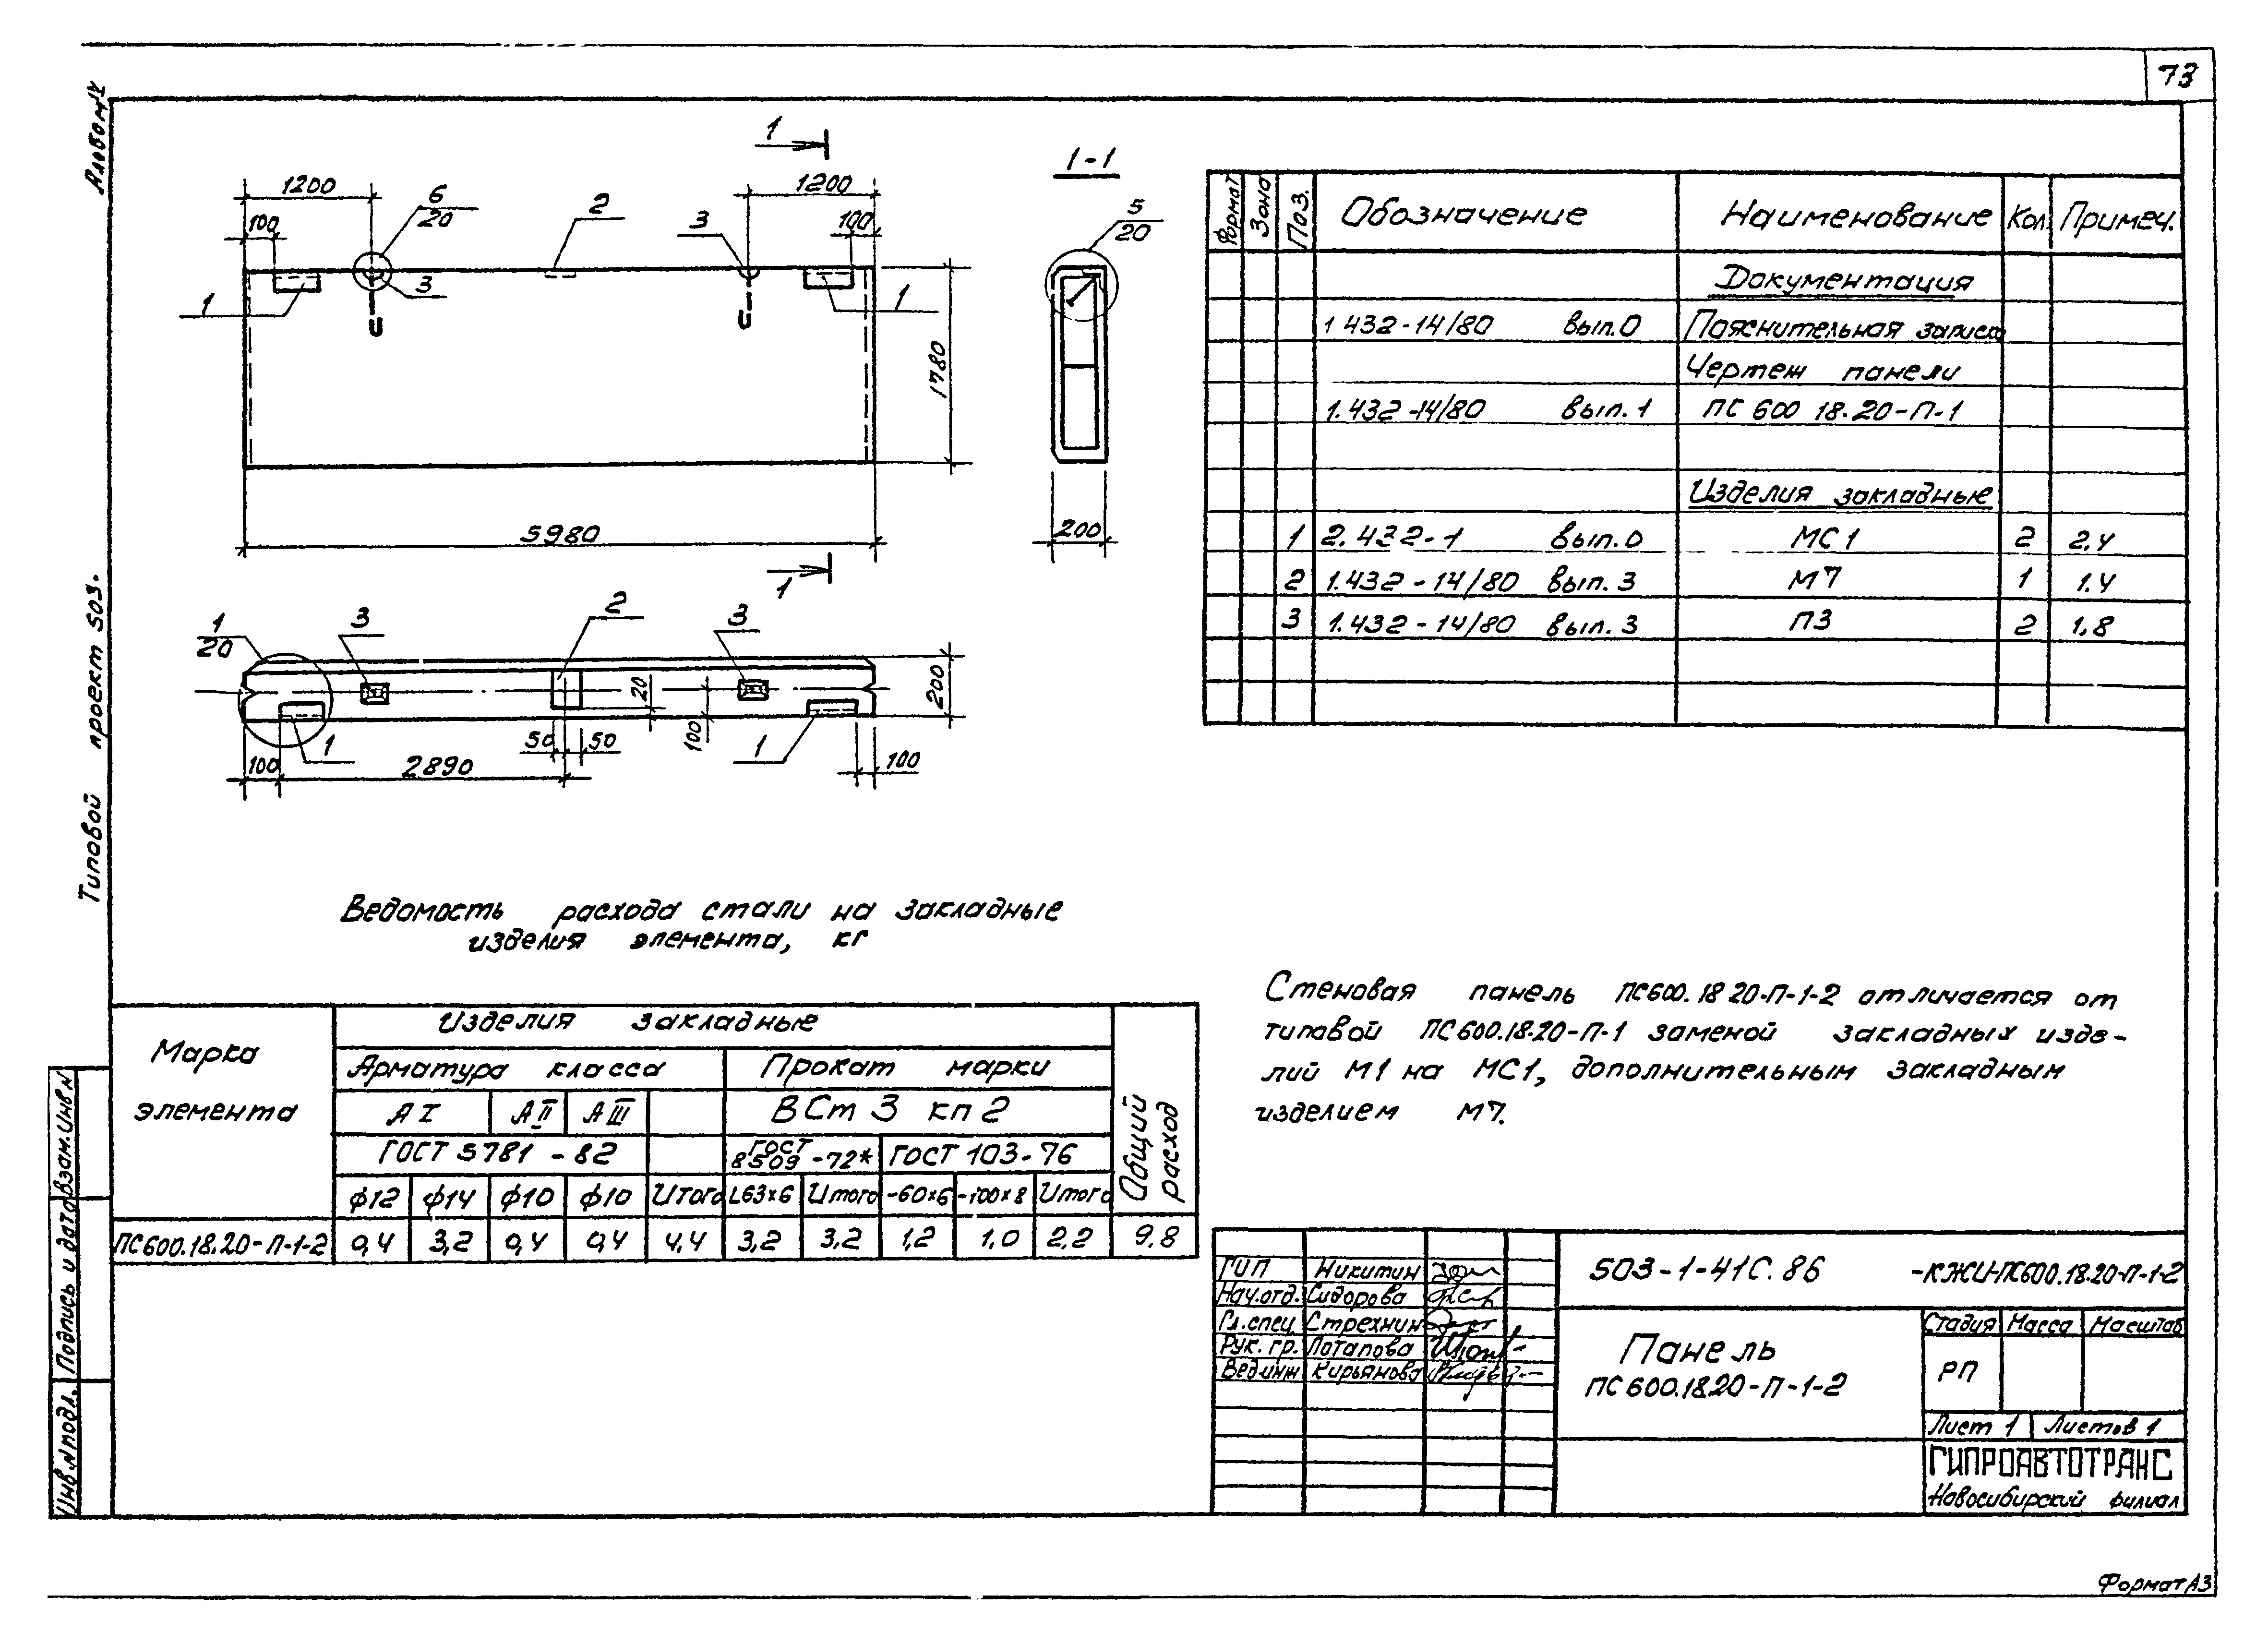 73
Альбом IV
Типовой проект 503.
1
1200
6
20
2
3
1200
100
100
3
1
1
1780
5980
1
1-1
5
20
200
1
20
3
2
3
20
100
200
50
50
1
1
100
2890
100
Формат Зона Поз. Обозначение Наименование Кол. Примеч.
Документация
1.432-14/80 вып.0 Пояснительная записка
Чертеж панели
1.432-14/80 вып.1 ПС 600 18.20-П-1
Изделия закладные
1 2.432-1 вып.0 МС1 2 2.4
2 1.432-14/80 вып.3 М7 1 1.4
3 1.432-14/80 вып.3 П3 2 1.8
Ведомость расхода стали на закладные
изделия элемента, кг
Марка элемента
Изделия закладные
Общий расход
Арматура класса Прокат марки
А I А II А III ВСт 3 кп 2
ГОСТ 5781-82 ГОСТ 8509-72* ГОСТ 103-76
ϕ12 ϕ14 ϕ10 ϕ10 Итого L63×6 Итого -60×6 -100×8 Итого
ПС600.18.20-П-1-2 0,4 3,2 0,4 0,4 4,4 3,2 3,2 1,2 1,0 2,2 9.8
Стеновая панель ПС600.18 20-П-1-2 отличается от
типовой ПС600.18.20-П-1 заменой закладных изде-
лий М1 на МС1, дополнительным закладным
изделием М7.
ГИП Никитин
Нач.отд. Сидорова
Гл.спец. Стрехнин
Рук. гр. Потапова
Вед.инж Кирьянова
503-1-41С.86 -КЖИ-ПС600.18.20-П-1-2
Панель
ПС600.18.20-П-1-2
Стадия Масса Масштаб
РП
Лист 1 Листов 1
ГИПРОАВТОТРАНС
Новосибирский филиал
Инв.№подл. Подпись и дата Взам.инв.№
Формат А3